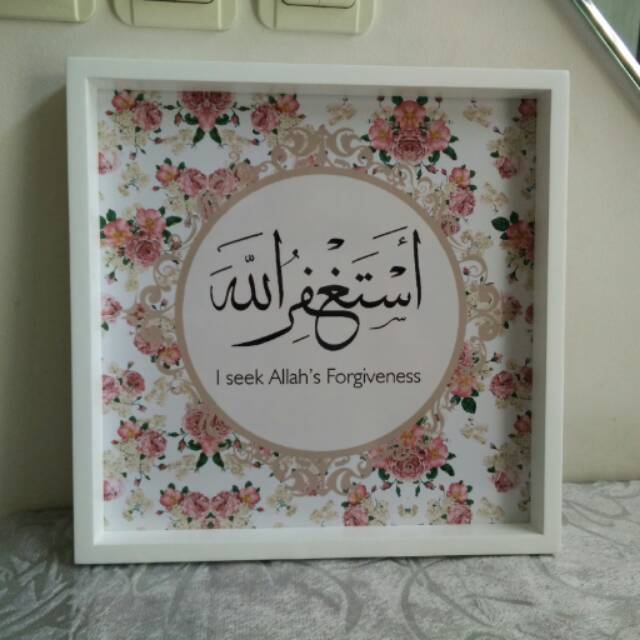 أَسْتَغْفِرُ اللّٰه
I seek Allah's Forgiveness